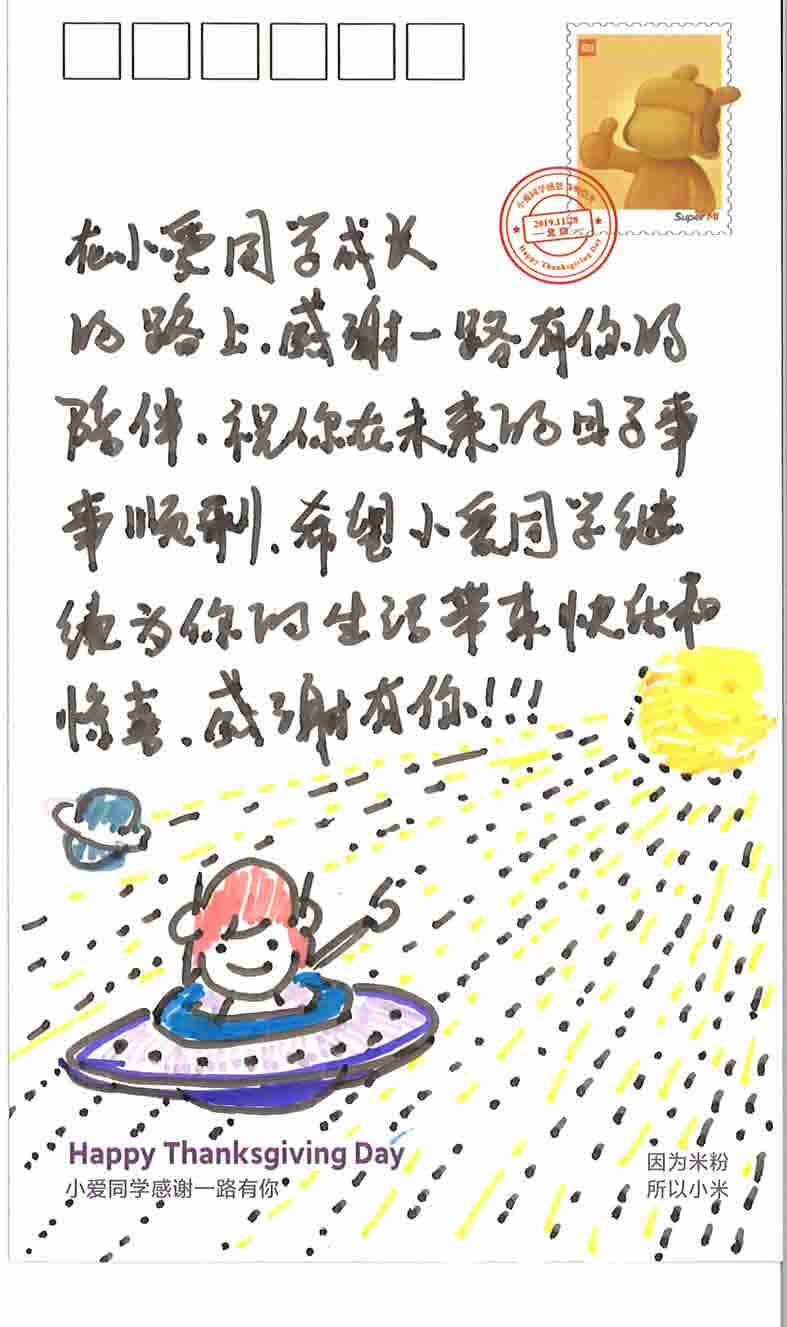 MI
Super MI
2019.11.28
北京
Happy Thanksgiving Day
在小爱同学成长
的路上，感谢一路有你的
陪伴，祝你在未来的日子事
事顺利，希望小爱同学继
续为你的生活带来快乐和
惊喜，感谢有你!!!
Happy Thanksgiving Day
小爱同学感谢一路有你
因为米粉
所以小米